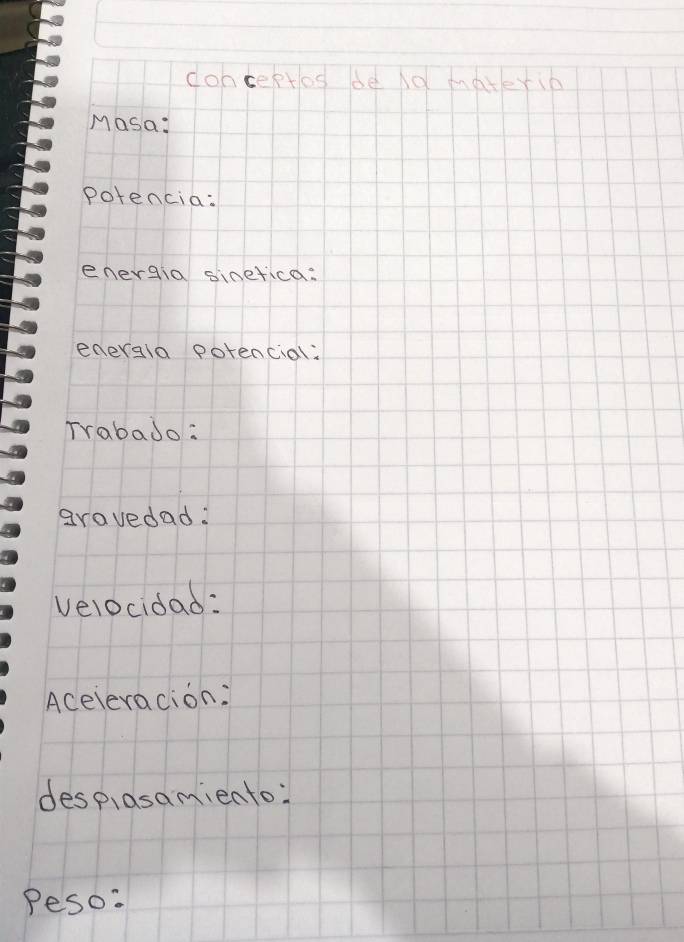 conceptos de la materia
Masa:
potencia:
energia sinetica:
energia potencial:
Trabajo:
gravedad:
velocidad:
Aceleración:
desplasamiento:
Peso: